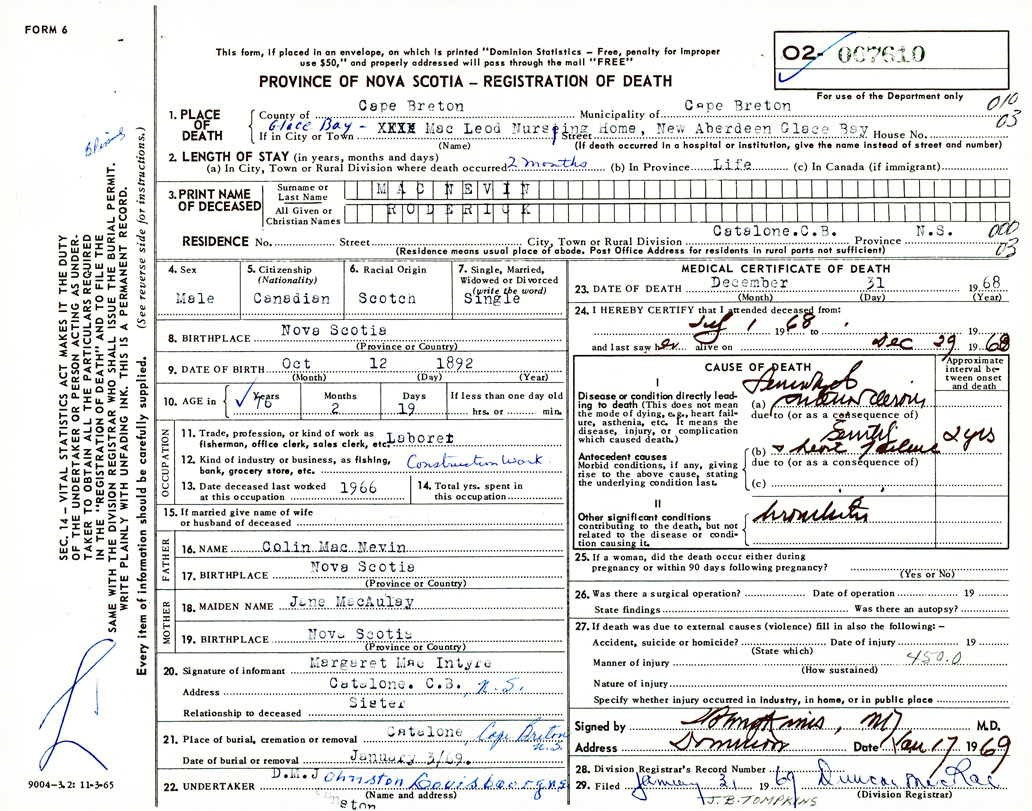 FORM 6
This form, if placed in an envelope, on which is printed "Dominion Statistics – Free, penalty for improper
use $50," and properly addressed will pass through the mail "FREE"
PROVINCE OF NOVA SCOTIA – REGISTRATION OF DEATH
02- 007610
For use of the Department only
010
03
1. PLACE OF DEATH
County of Cape Breton Municipality of Cape Breton
Glace Bay – XXXX Mac Leod Nursing Home, New Aberdeen Glace Bay
If in City or Town Street House No.
(Name) (If death occurred in a hospital or institution, give the name instead of street and number)
2. LENGTH OF STAY (in years, months and days)
(a) In City, Town or Rural Division where death occurred 2 months (b) In Province Life (c) In Canada (if immigrant)
3. PRINT NAME OF DECEASED
Surname or Last Name MAC NEVIN
All Given or Christian Names RODERICK
Catalone.C.B. N.S.
RESIDENCE No. Street City, Town or Rural Division Province
(Residence means usual place of abode. Post Office Address for residents in rural parts not sufficient)
000
03
4. Sex
Male
5. Citizenship
(Nationality)
Canadian
6. Racial Origin
Scotch
7. Single, Married,
Widowed or Divorced
(write the word)
Single
8. BIRTHPLACE Nova Scotia
(Province or Country)
9. DATE OF BIRTH Oct 12 1892
(Month) (Day) (Year)
10. AGE in
Years
76
Months
2
Days
19
If less than one day old
hrs. or min.
OCCUPATION
11. Trade, profession, or kind of work as
fisherman, office clerk, sales clerk, etc. Laborer
12. Kind of industry or business, as fishing,
bank, grocery store, etc. Construction Work
13. Date deceased last worked
at this occupation 1966
14. Total yrs. spent in
this occupation
15. If married give name of wife
or husband of deceased
FATHER
16. NAME Colin Mac Nevin
17. BIRTHPLACE Nova Scotia
(Province or Country)
MOTHER
18. MAIDEN NAME Jane MacAulay
19. BIRTHPLACE Nova Scotia
(Province or Country)
20. Signature of informant Margaret Mac Intyre
Address Catalone. C.B. N.S.
Relationship to deceased Sister
21. Place of burial, cremation or removal Catalone Cape Breton
N.S.
Date of burial or removal January 3/69.
22. UNDERTAKER D.M.Johnston Louisbourg NS
(Name and address)
MEDICAL CERTIFICATE OF DEATH
23. DATE OF DEATH December 31 1968
(Month) (Day) (Year)
24. I HEREBY CERTIFY that I attended deceased from:
July 1 1968 to 19
and last saw h alive on Dec 29 1968
CAUSE OF DEATH
Approximate
interval be-
tween onset
and death
I
Disease or condition directly lead-
ing to death (This does not mean
the mode of dying, e.g., heart fail-
ure, asthenia, etc. It means the
disease, injury, or complication
which caused death.)
(a)
due to (or as a consequence of)
2 yrs
Antecedent causes
Morbid conditions, if any, giving
rise to the above cause, stating
the underlying condition last.
(b) failure
due to (or as a consequence of)
(c)
II
Other significant conditions
contributing to the death, but not
related to the disease or condi-
tion causing it.
bronchitis
25. If a woman, did the death occur either during
pregnancy or within 90 days following pregnancy?
(Yes or No)
26. Was there a surgical operation? Date of operation 19
State findings Was there an autopsy?
27. If death was due to external causes (violence) fill in also the following: –
Accident, suicide or homicide? Date of injury 19
(State which)
Manner of injury 450.0
(How sustained)
Nature of injury
Specify whether injury occurred in industry, in home, or in public place
Signed by MD M.D.
Address Dominion Date Jan 17 1969
28. Division Registrar's Record Number
29. Filed January 31 1969 Duncan MacRae
(Division Registrar)
J.B. TOMPKINS
SEC. 14 – VITAL STATISTICS ACT MAKES IT THE DUTY
OF THE UNDERTAKER OR PERSON ACTING AS UNDER-
TAKER TO OBTAIN ALL THE PARTICULARS REQUIRED
IN THE "REGISTRATION OF DEATH" AND TO FILE THE
SAME WITH THE DIVISION REGISTRAR WHO SHALL ISSUE THE BURIAL PERMIT.
WRITE PLAINLY WITH UNFADING INK. THIS IS A PERMANENT RECORD.
Every item of information should be carefully supplied. (See reverse side for instructions.)
9004-3.2: 11-3-65